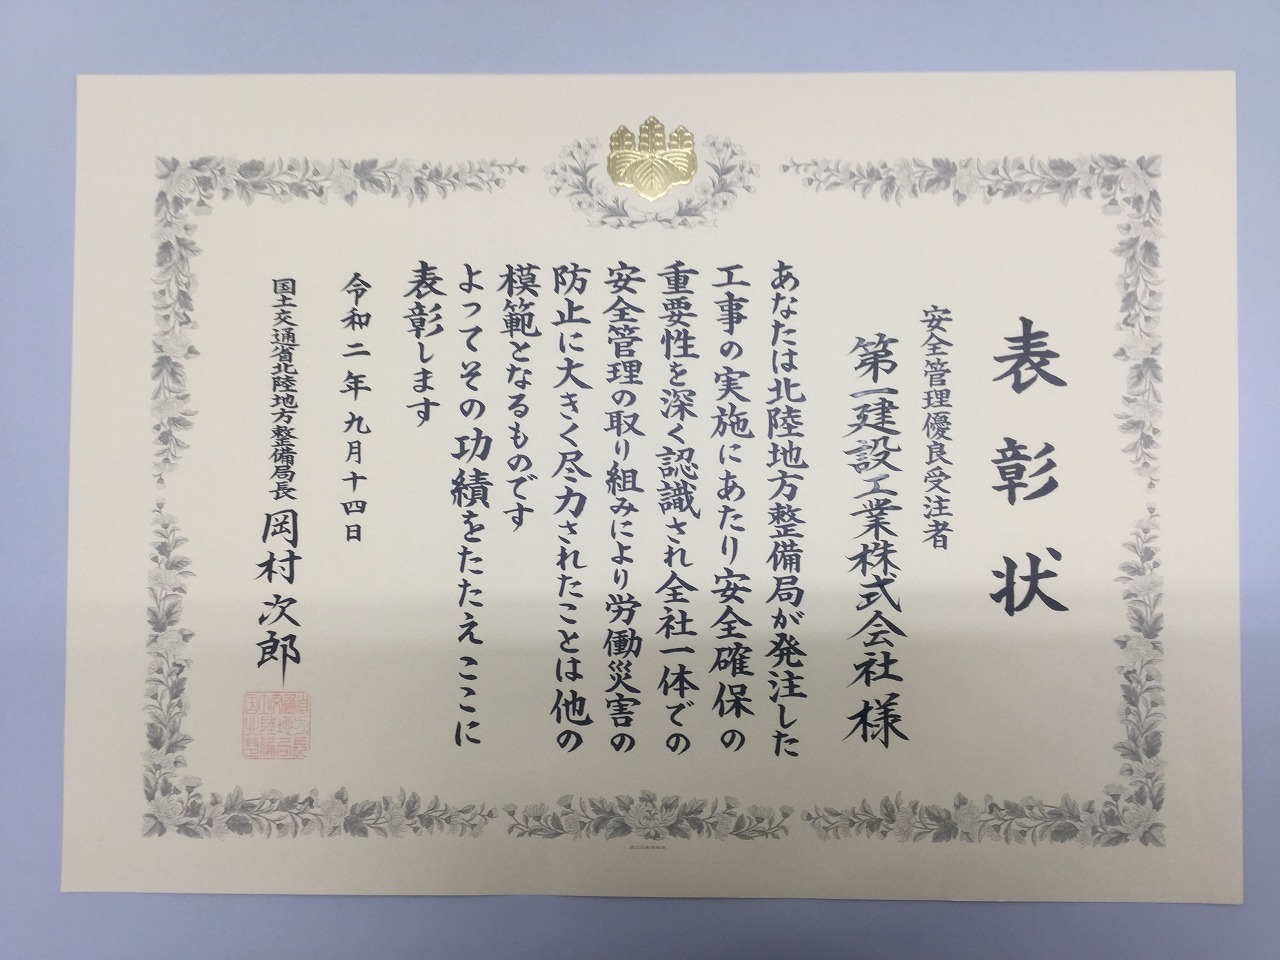 表彰状
安全管理優良受注者
第一建設工業株式会社様
あなたは北陸地方整備局が発注した
工事の実施にあたり安全確保の
重要性を深く認識され全社一体での
安全管理の取り組みにより労働災害の
防止に大きく尽力されたことは他の
模範となるものです
よってその功績をたたえここに
表彰します
令和二年九月十四日
国土交通省北陸地方整備局長 岡村次郎